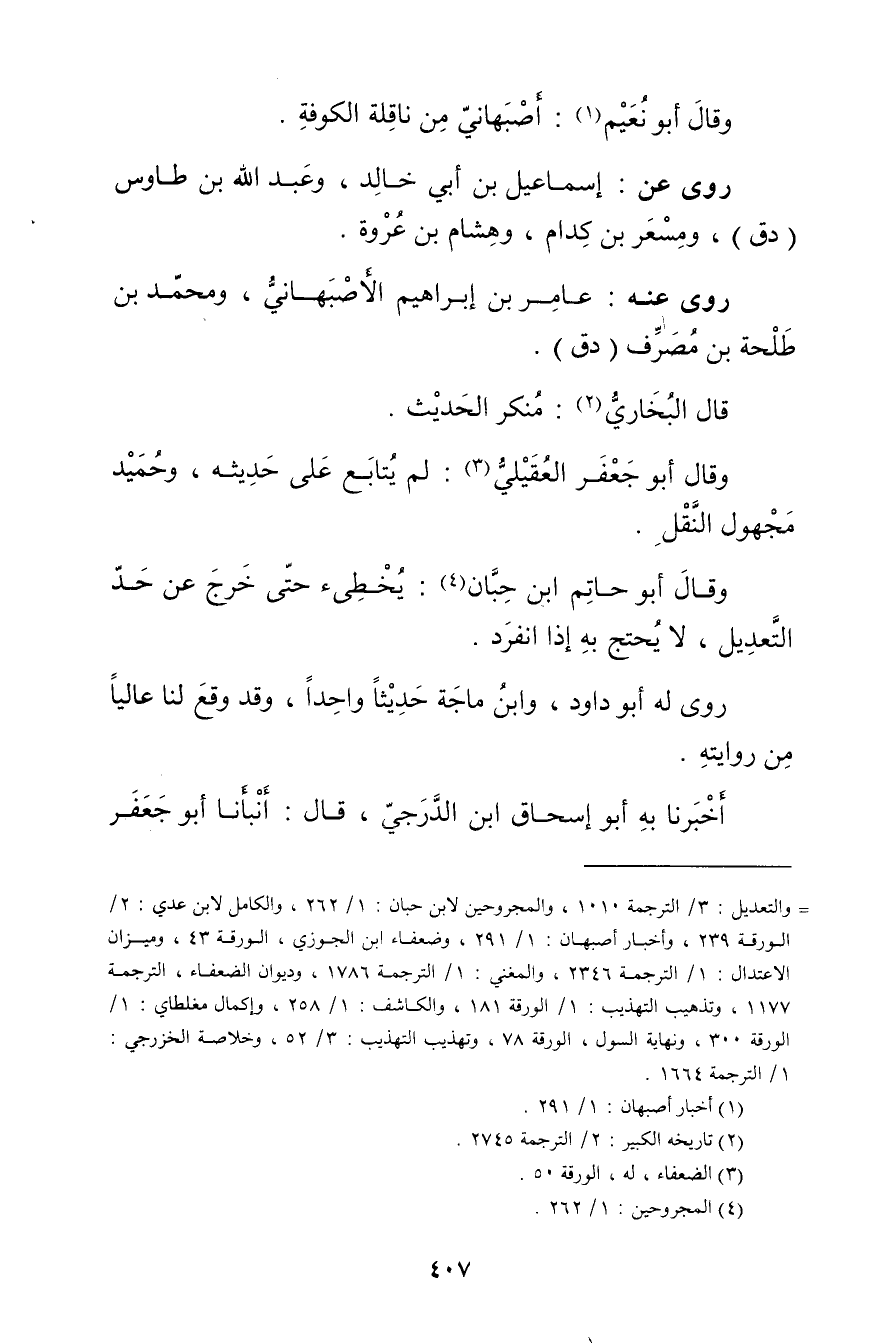 وقالَ أبو نُعَيْم(١) : أَصْبَهانيّ مِن ناقِلة الكوفةِ .
روى عن : إسمـاعيل بن أبي خـالِد ، وعَبـد الله بن طـاوس
( دق ) ، ومِسْعَر بن كِدام ، وهِشام بن عُرْوة .
روى عنـه : عـامِـر بن إبـراهيم الأَصْبَهـانيُّ ، ومحمّـد بن
طَلْحة بن مُصَرِّف ( دق ) .
قال البُخَاريُّ(٢) : مُنكر الحَديْث .
وقال أبو جَعْفَـر العُقَيْليُّ(٣) : لم يُتابَـع عَلى حَدِيثـه ، وحُمَيْد
مَجْهول النَّقْلِ .
وقـالَ أبو حـاتِم ابن حِبَّان(٤) : يُخْـطِىء حتّى خَرجَ عن حَـدّ
التَّعدِيل ، لا يُحتج بهِ إذا انفرَد .
روى له أبو داود ، وابنُ ماجَة حَدِيْثاً واحِداً ، وقد وقعَ لنا عالياً
مِن روايتهِ .
أَخْبَرنا بهِ أبو إسحـاق ابن الدَّرَجيّ ، قـال : أَنْبأنـا أبو جَعَفَـر
= والتعديل : ٣/ الترجمة ١٠١٠ ، والمجروحين لابن حبان : ١/ ٢٦٢ ، والكامل لابن عدي : ٢/
الـورقـة ٢٣٩ ، وأخبـار أصبهـان : ١/ ٢٩١ ، وضعفـاء ابن الجـوزي ، الـورقـة ٤٣ ، وميـزان
الاعتدال : ١/ الترجمـة ٢٣٤٦ ، والمغني : ١/ الترجمة ١٧٨٦ ، وديوان الضعفـاء ، الترجمـة
١١٧٧ ، وتذهيب التهذيب : ١/ الورقة ١٨١ ، والكـاشف : ١/ ٢٥٨ ، وإكمال مغلطاي : ١/
الورقة ٣٠٠ ، ونهاية السول ، الورقة ٧٨ ، وتهذيب التهذيب : ٣/ ٥٢ ، وخلاصـة الخزرجي :
١/ الترجمة ١٦٦٤ .
(١) أخبار أصبهان : ١/ ٢٩١ .
(٢) تاريخه الكبير : ٢/ الترجمة ٢٧٤٥ .
(٣) الضعفاء ، له ، الورقة ٥٠ .
(٤) المجروحين : ١/ ٢٦٢ .
٤٠٧